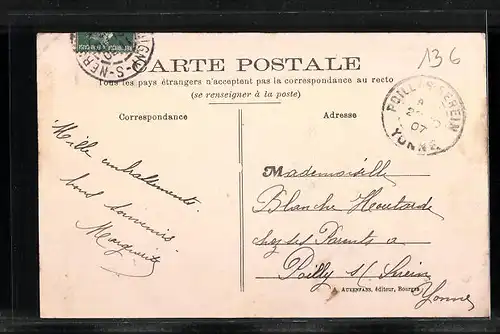 136
CARTE POSTALE
Tous les pays étrangers n'acceptent pas la correspondance au recto
(se renseigner à la poste)
Correspondance
Adresse
POILLY-S-SEREIN
07
YONNE
Mille embrassements.
bons souvenirs
Marguerite
Mademoiselle
Blanche Houtarde
chez ses Parents à
Poilly s/ Serein
A. AUXENFANS, éditeur, Bourges
Yonne